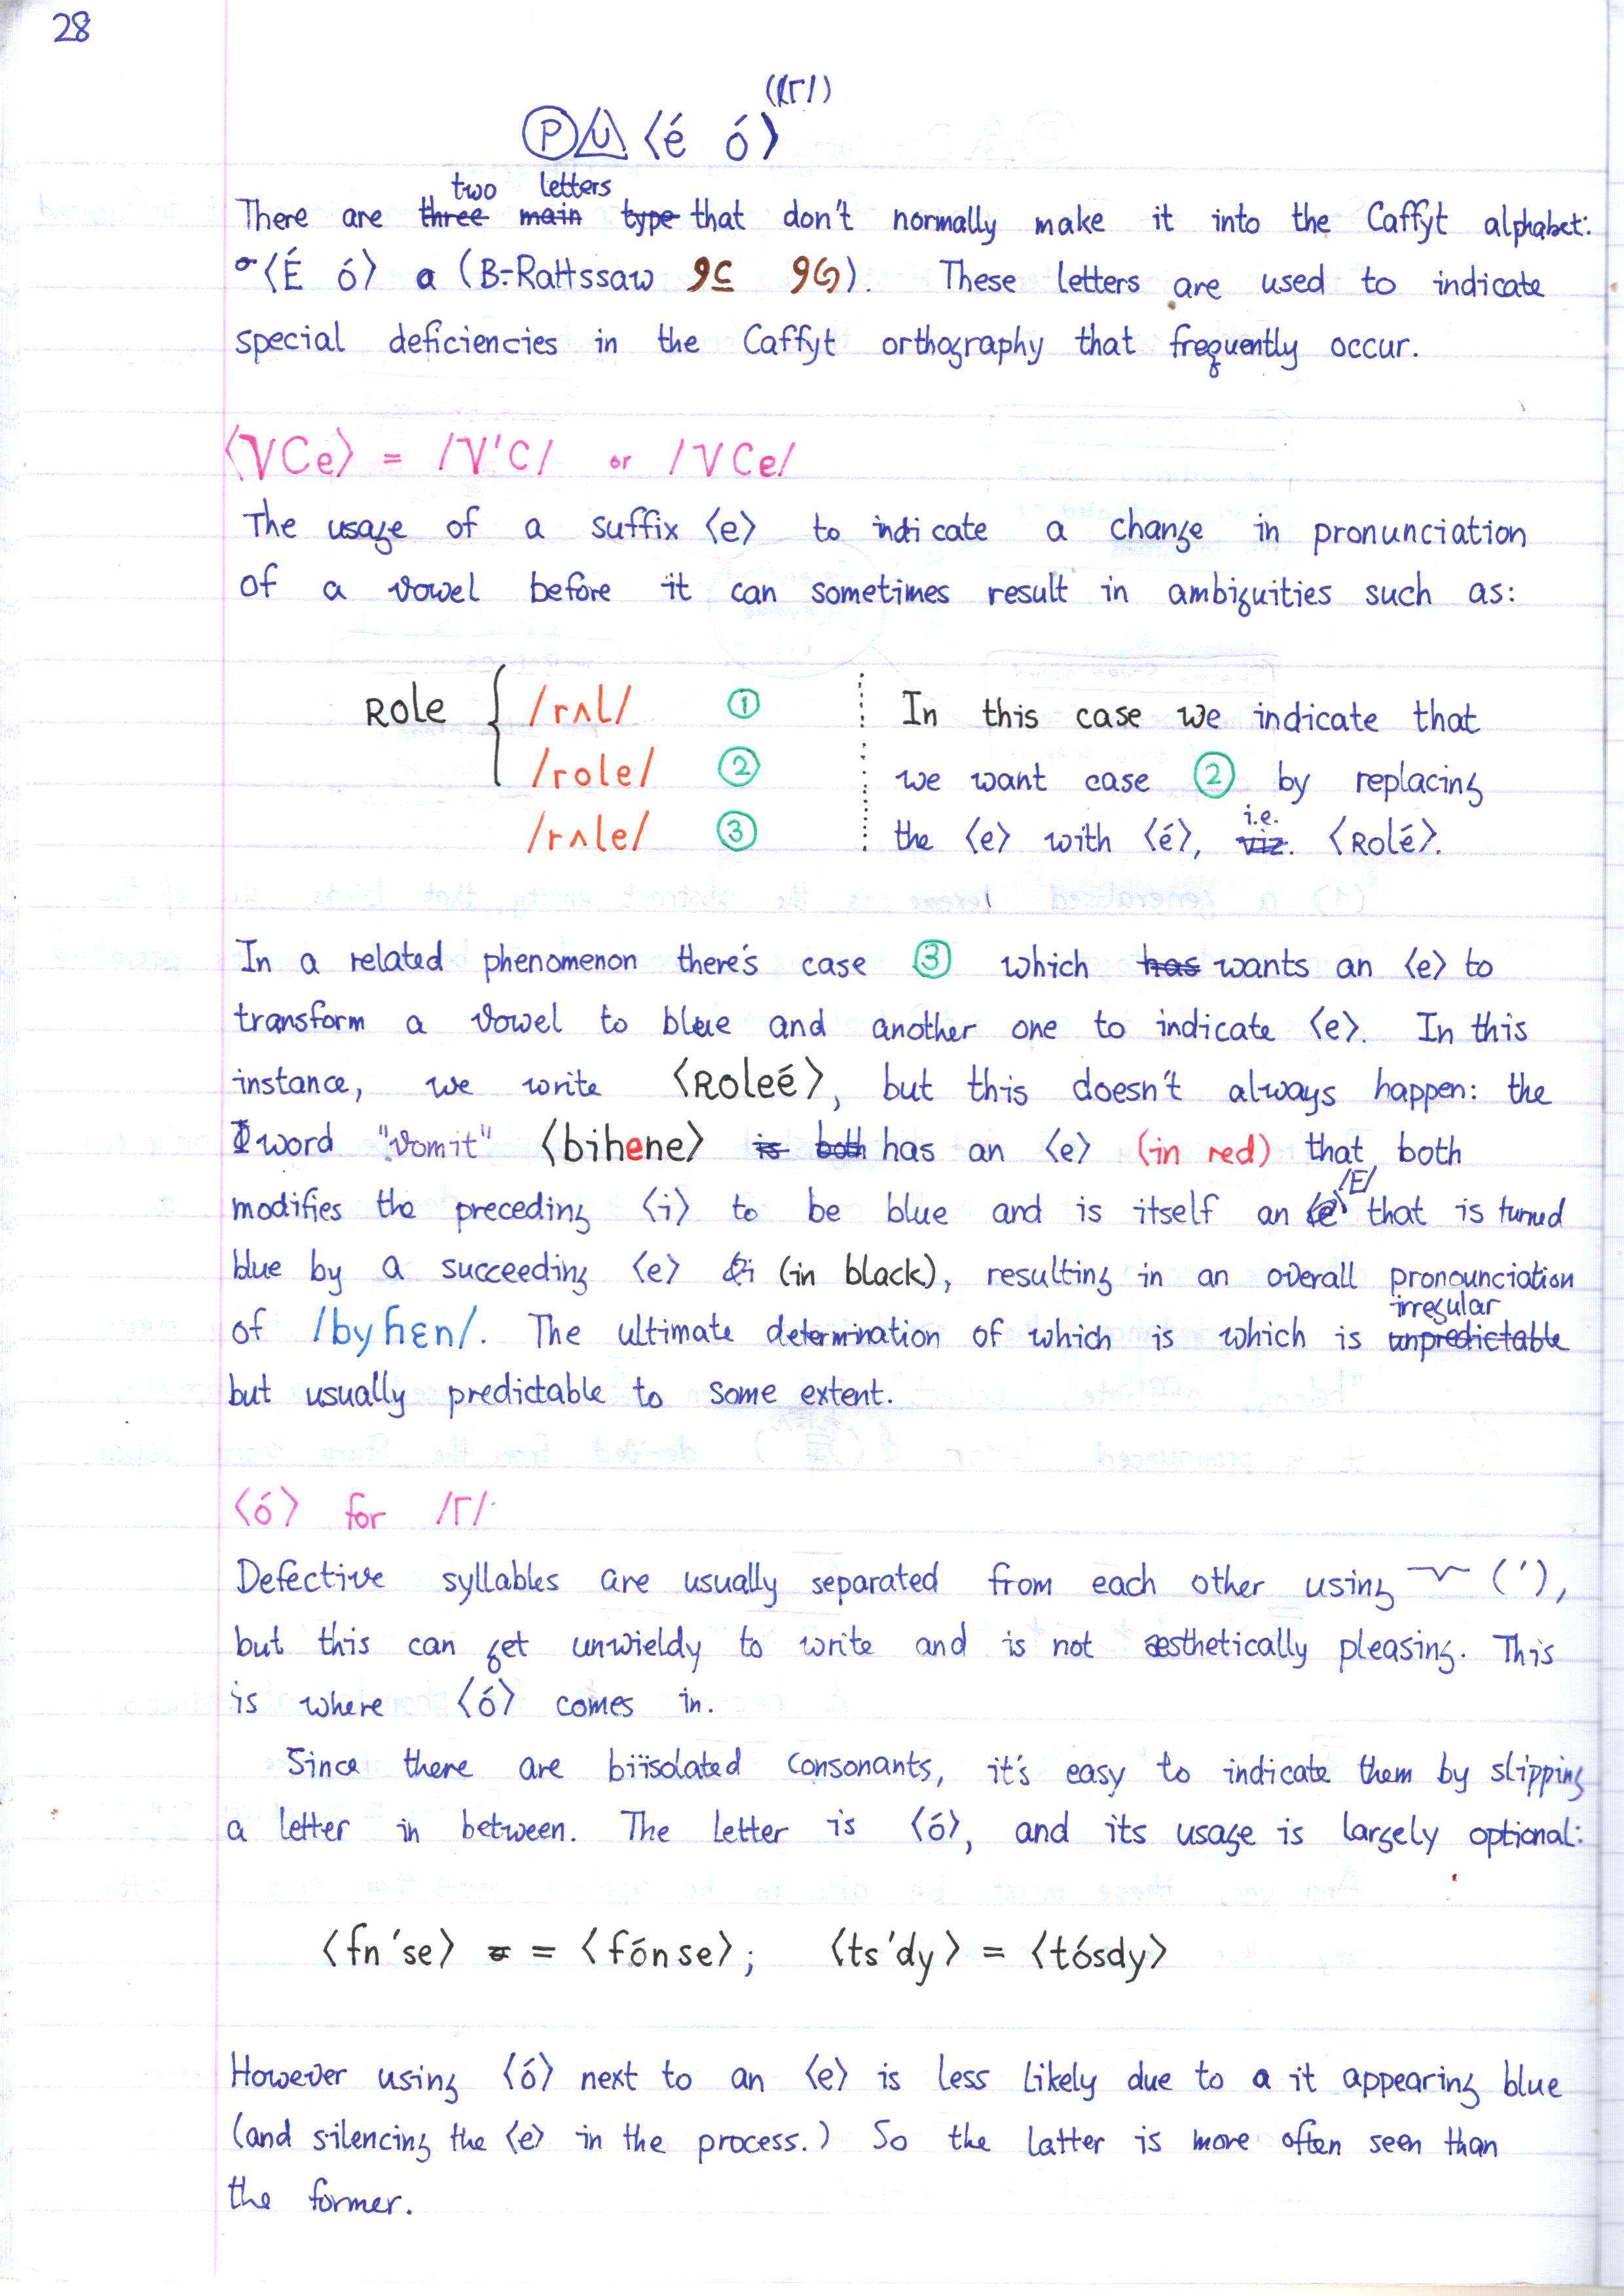 28
(/Γ/)
Ⓟ U ⟨é ó⟩
two letters
There are three main type that don't normally make it into the Caffyt alphabet:
⟨É ó⟩ a (B:-Rattssaw). These letters are used to indicate
special deficiencies in the Caffyt orthography that frequently occur.
⟨VCe⟩ = /V'C/ or /VCe/
The usage of a suffix ⟨e⟩ to indicate a change in pronunciation
of a vowel before it can sometimes result in ambiguities such as:
Role { /rʌl/ ① In this case we indicate that
/role/ ② we want case ② by replacing
i.e.
/rʌle/ ③ the ⟨e⟩ with ⟨é⟩, viz. ⟨Rolé⟩.
In a related phenomenon there's case ③ which has wants an ⟨e⟩ to
transform a vowel to blue and another one to indicate ⟨e⟩. In this
instance, we write ⟨Roleé⟩, but this doesn't always happen: the
word "vomit" ⟨bihene⟩ is both has an ⟨e⟩ (in red) that both
/E/
modifies the preceding ⟨i⟩ to be blue and is itself an ⟨e⟩ that is turned
blue by a succeeding ⟨e⟩ (in black), resulting in an overall pronounciation
irregular
of /byɦɛn/. The ultimate determination of which is which is unpredictable
but usually predictable to some extent.
⟨ó⟩ for /Γ/
Defective syllables are usually separated from each other using ('),
but this can get unwieldy to write and is not æsthetically pleasing. This
is where ⟨ó⟩ comes in.
Since there are biïsolated consonants, it's easy to indicate them by slipping
a letter in between. The letter is ⟨ó⟩, and its usage is largely optional:
⟨fn'se⟩ = ⟨fónse⟩; ⟨ts'dy⟩ = ⟨tósdy⟩
However using ⟨ó⟩ next to an ⟨e⟩ is less likely due to a it appearing blue
(and silencing the ⟨e⟩ in the process.) So the latter is more often seen than
the former.